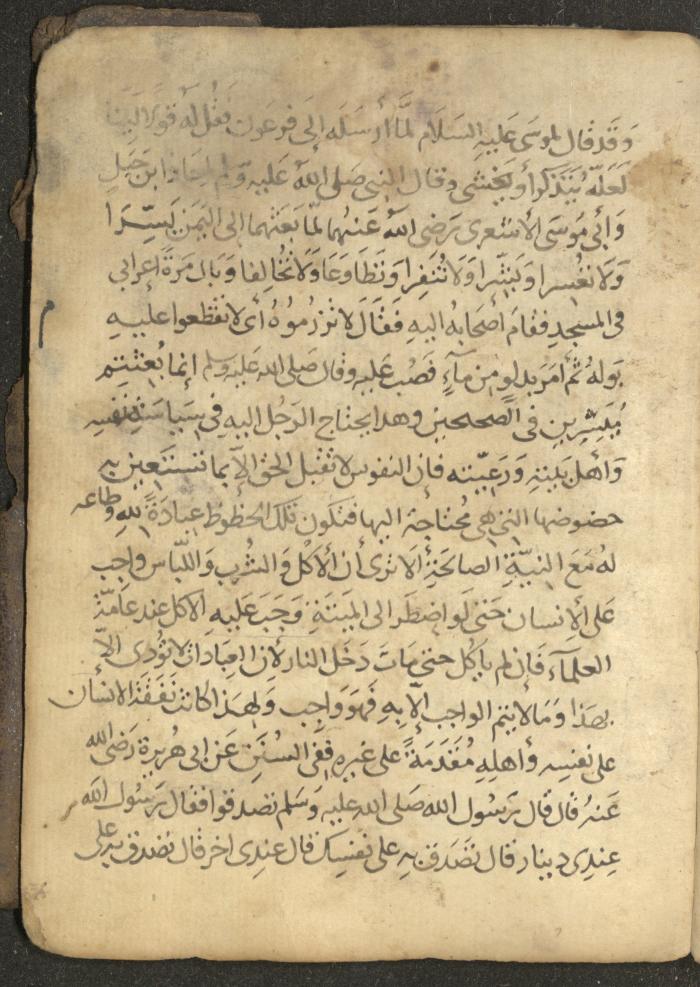 وَقَد قال لموسَى عَليهِ السَلام لمَّا أرسَله إلى فرعَون فَقُل لَهُ قولا ليّنا
لَعَلّهُ يَتَذكرُ أو يَخشى وقال النبى صَلى اللهُ عَليه وَلم لمعَاذ ابن جَبَلٍ
وَأبى مَوسَى الأشعرى رَضى اللهُ عَنهُما لمّا بَعَثهما إلى اليَمَن يَسِّرَا
وَلا تعُسرا وبَشِّرا وَلا تُنَفِرا وَتطَاوَعَا وَلا تُخَالِفا وَبال مَرةً اعرابى
فى المسجدِ فقامَ أصحَابهُ اليهِ فقَالَ لا تزرُموُهُ أى لا تقطعوا عليهِ
بَولهُ ثمَ أمَر بدلوٍ من مآءٍ فصُب عَليهِ وقال صَلى الله عَليه وسلم إنما بُعثتم
مُيَسِّرِين فى الصَحيحين وهَدا يحتاج الرَجُل اليهِ فى سيَاسَة نفسِهِ
وَأهل بَيتهِ وَرَعيّته فإن النفوسَ لا تقبَل الحق إلّا بما تستَعين به
حضوضها التى هى مُحتاجة اليها فتكون تلكَ الحظوظ عبادَةً للهِ وطاعه
لهُ مَعَ النيّةِ الصالحَةِ ألا ترى أن الأكل وَالشُرب وَاللبّاس واجب
عَلى الأِنسان حَتى لَو اضطَر الى الميتَةِ وَجَبَ عَليهِ الاكل عند عَامّة
العلمآء فَإن لم يأكل حتى مَات دَخَل النار لأن العبادات لا تؤدى إلّا
بهذا وَمَا لا يتم الواجب إلّا بِهِ فَهوَ وَاجِب وَلِهَذا كانت نَفَقَة الانسان
على نفسِهِ وأهلِهِ مُقَدَمَةً على غيرهِ ففى السُنَنِ عَن ابى هُريرة رَضى الله
عَنهُ قال قال رَسُول الله صَلى الله عليه وَسَلم تصدقوا فقال رَسُول الله
عِندِى دينار قال تصَدَق بِهِ على نفسِك قال عندِى اخر قال تصدق به على